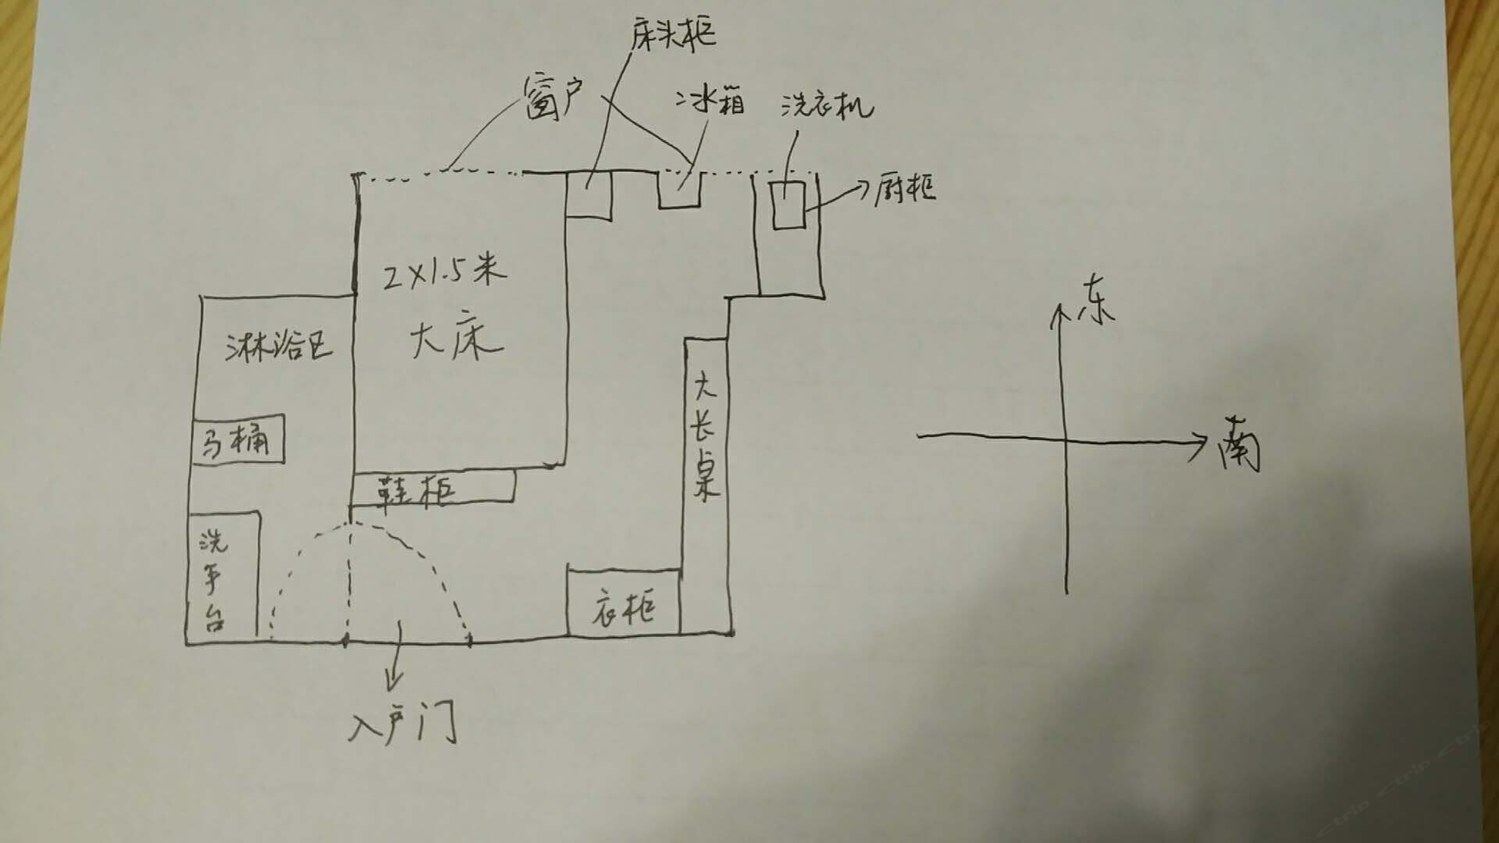 床头柜
窗户
冰箱
洗衣机
厨柜
2×1.5米
大床
淋浴区
马桶
鞋柜
洗手台
大长桌
衣柜
入户门
东
南